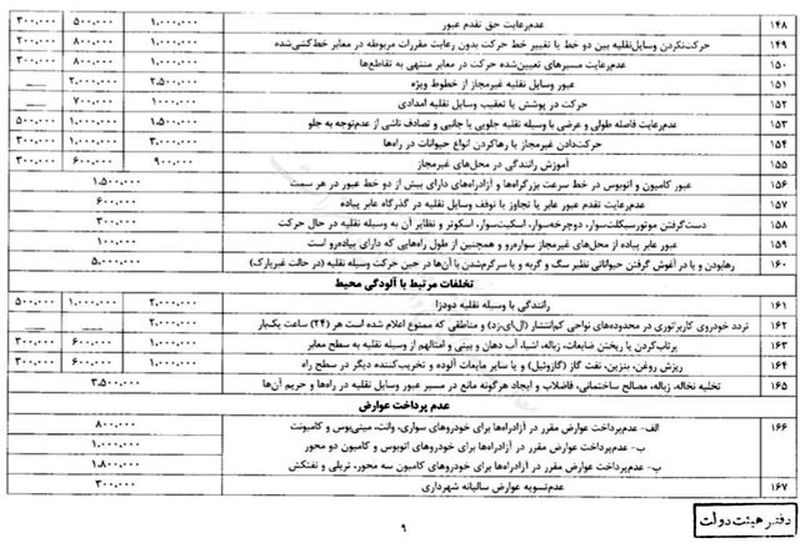 ۱۴۸ عدم‌رعایت حق تقدم عبور ۱،۰۰۰،۰۰۰ ۵۰۰،۰۰۰ ۳۰۰،۰۰۰
۱۴۹ حرکت‌نکردن وسایل‌نقلیه بین دو خط یا تغییر خط حرکت بدون رعایت مقررات مربوطه در معابر خط‌کشی‌شده ۱،۰۰۰،۰۰۰ ۸۰۰،۰۰۰ ۲۰۰،۰۰۰
۱۵۰ عدم‌رعایت مسیرهای تعیین‌شده حرکت در معابر منتهی به تقاطع‌ها ۱،۰۰۰،۰۰۰ ۸۰۰،۰۰۰ ۳۰۰،۰۰۰
۱۵۱ عبور وسایل نقلیه غیرمجاز از خطوط ویژه ۲،۵۰۰،۰۰۰ ۲،۰۰۰،۰۰۰ —
۱۵۲ حرکت در پوشش یا تعقیب وسایل نقلیه امدادی ۱۰۰۰،۰۰۰ ۷۰۰،۰۰۰ —
۱۵۳ عدم‌رعایت فاصله طولی و عرضی با وسیله نقلیه جلویی یا جانبی و تصادف ناشی از عدم‌توجه به جلو ۱،۵۰۰،۰۰۰ ۱،۰۰۰،۰۰۰ ۵۰۰،۰۰۰
۱۵۴ حرکت‌دادن غیرمجاز یا رهاکردن انواع حیوانات در راه‌ها ۳،۰۰۰،۰۰۰ ۱،۰۰۰،۰۰۰ ۳۰۰،۰۰۰
۱۵۵ آموزش رانندگی در محل‌های غیرمجاز ۹۰۰،۰۰۰ ۶۰۰،۰۰۰ ۳۰۰،۰۰۰
۱۵۶ عبور کامیون و اتوبوس در خط سرعت بزرگراه‌ها و آزادراه‌های دارای بیش از دو خط عبور در هر سمت ۱،۵۰۰،۰۰۰
۱۵۷ عدم‌رعایت تقدم عبور عابر یا تجاوز یا توقف وسایل نقلیه در گذرگاه عابر پیاده ۶۰۰،۰۰۰
۱۵۸ دست‌گرفتن موتورسیکلت‌سوار، دوچرخه‌سوار، اسکیت‌سوار، اسکوتر و نظایر آن به وسیله نقلیه در حال حرکت ۳۰۰،۰۰۰
۱۵۹ عبور عابر پیاده از محل‌های غیرمجاز سواره‌رو و همچنین از طول راه‌هایی که دارای پیاده‌رو است ۱۰۰،۰۰۰
۱۶۰ رهابودن و یا در آغوش گرفتن حیواناتی نظیر سگ و گربه و یا سرگرم‌شدن با آن‌ها در حین حرکت وسیله نقلیه (در حالت غیرپارک) ۵،۰۰۰،۰۰۰
تخلفات مرتبط با آلودگی محیط
۱۶۱ رانندگی با وسیله نقلیه دودزا ۲،۰۰۰،۰۰۰ ۱،۰۰۰،۰۰۰ ۵۰۰،۰۰۰
۱۶۲ تردد خودروی کاربراتوری در محدوده‌های نواحی کم‌انتشار (ال.ای.زد) و مناطقی که ممنوع اعلام شده است هر (۲۴) ساعت یک‌بار ۲،۰۰۰،۰۰۰ — —
۱۶۳ پرتاب‌کردن یا ریختن ضایعات، زباله، اشیا، آب دهان و بینی و امثالهم از وسیله نقلیه به سطح معابر ۱،۰۰۰،۰۰۰ ۶۰۰،۰۰۰ ۳۰۰،۰۰۰
۱۶۴ ریزش روغن، بنزین، نفت گاز (گازوئیل) و یا سایر مایعات آلوده و تخریب‌کننده دیگر در سطح راه ۱،۰۰۰،۰۰۰ ۶۰۰،۰۰۰ ۳۰۰،۰۰۰
۱۶۵ تخلیه نخاله، زباله، مصالح ساختمانی، فاضلاب و ایجاد هرگونه مانع در مسیر عبور وسایل نقلیه در راه‌ها و حریم آن‌ها ۳،۵۰۰،۰۰۰
عدم پرداخت عوارض
۱۶۶ الف- عدم‌پرداخت عوارض مقرر در آزادراه‌ها برای خودروهای سواری، وانت، مینی‌بوس و کامیونت ۸۰۰،۰۰۰
ب- عدم‌پرداخت عوارض مقرر در آزادراه‌ها برای خودروهای اتوبوس و کامیون دو محور ۱،۰۰۰،۰۰۰
پ- عدم‌پرداخت عوارض مقرر در آزادراه‌ها برای خودروهای کامیون سه محور، تریلی و نفتکش ۱،۸۰۰،۰۰۰
۱۶۷ عدم‌تسویه عوارض سالیانه شهرداری ۳۰۰،۰۰۰
۹
دفتر هیئت دولت